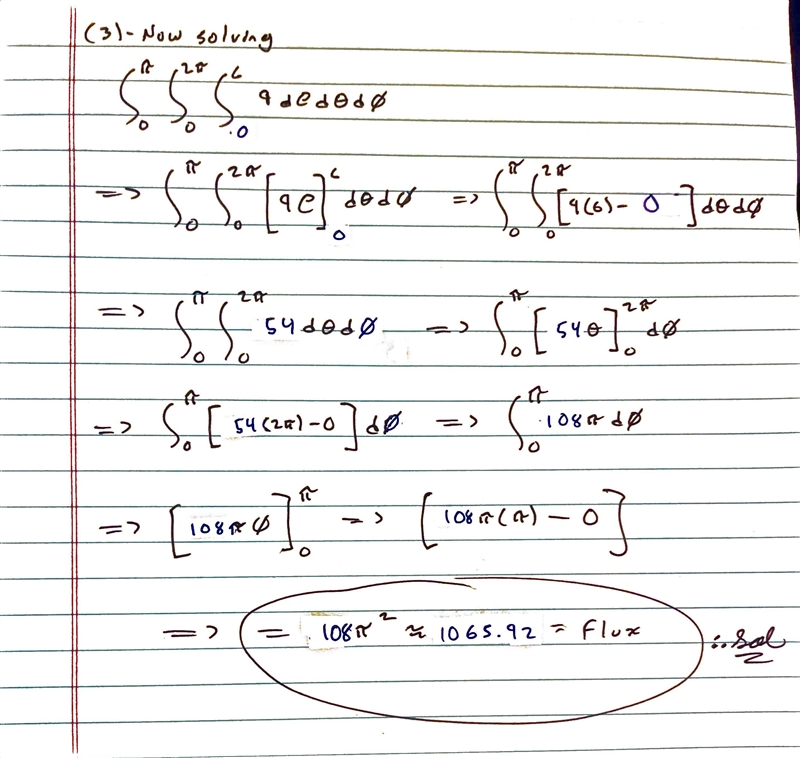 (3)- Now solving
∫₀^π ∫₀^2π ∫₀^6 9 dρ dθ dφ
=> ∫₀^π ∫₀^2π [9ρ]₀^6 dθ dφ => ∫₀^π ∫₀^2π [9(6) - 0] dθ dφ
=> ∫₀^π ∫₀^2π 54 dθ dφ => ∫₀^π [54θ]₀^2π dφ
=> ∫₀^π [54(2π) - 0] dφ => ∫₀^π 108π dφ
=> [108π φ]₀^π => [108π(π) - 0]
=> = 108π² ≈ 1065.92 = Flux ∴ sol